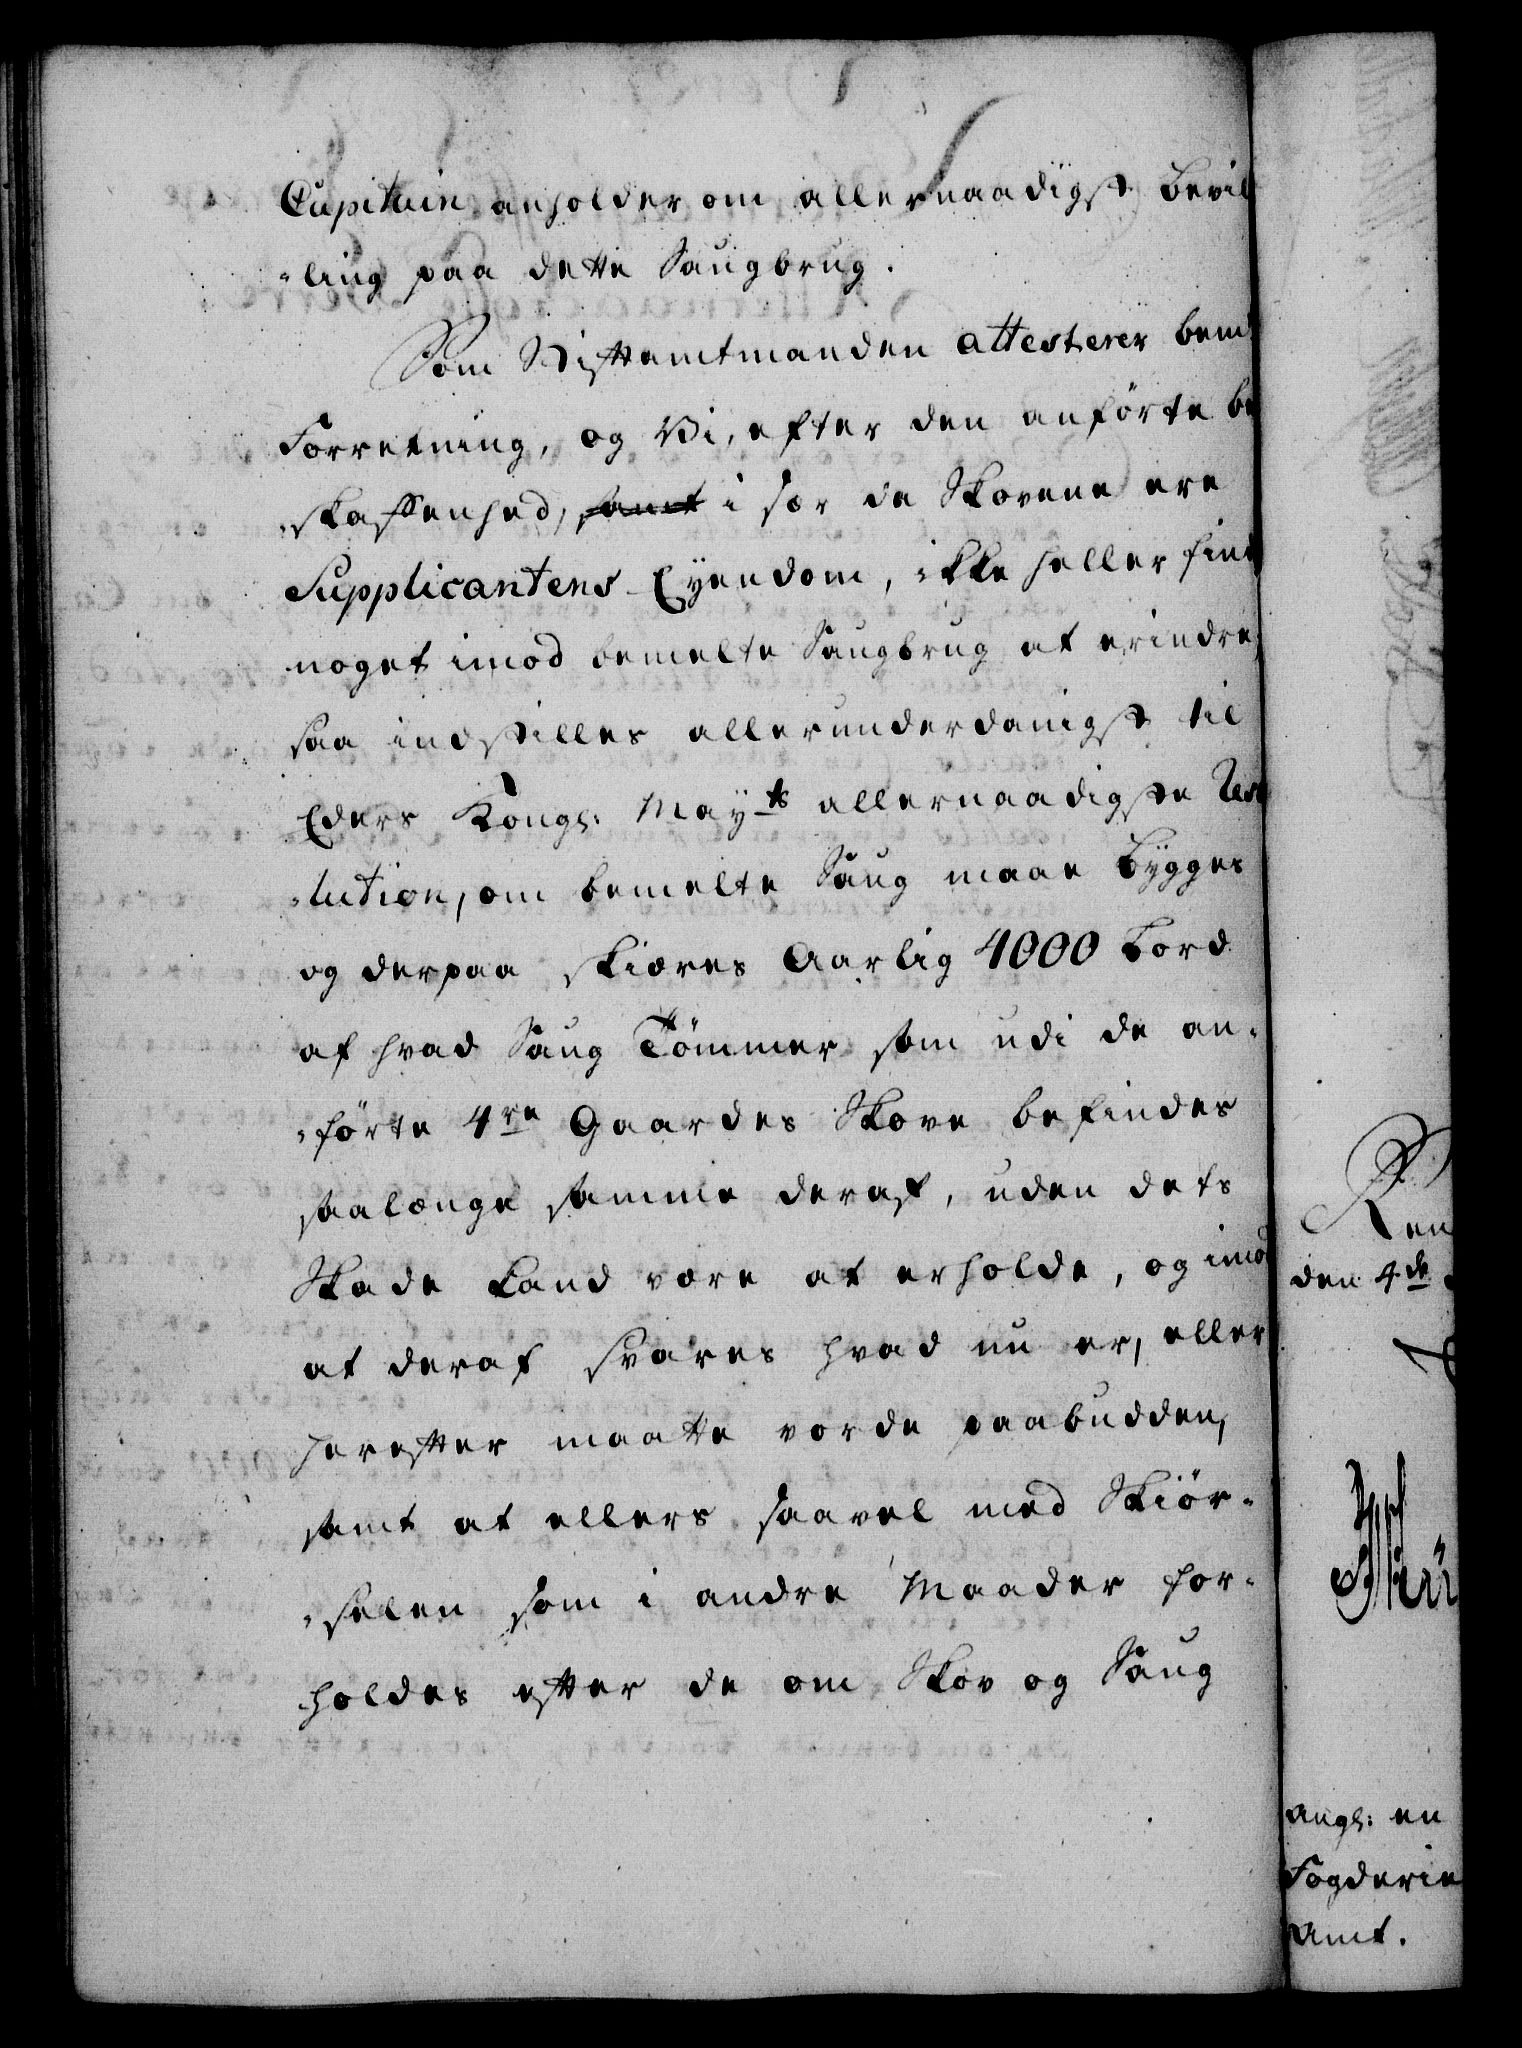 Capitain anholder om allernaadigst Bevil
-ling paa dette Saugbrug.
Som Stiftamtmanden attesterer bem
Forretning, og Vi, efter den anførte be
-skaffenhed, samt i sær da Skovene ere
Supplicantens Eyendom, ikke heller find
noget imod bemelte Saugbrug at erindre,
saa indstilles allerunderdanigst til
Eders Kongl: Mayts allernaadigste Reso
-lution, om bemelte Saug maae bygges
og derpaa skiæres Aarlig 4000 Bord
af hvad Saug Tømmer som udi de an-
-førte 4re Gaardes Skove befindes
saalænge samme deraf, uden dets
Skade kand være at erholde, og imod
at deraf svares hvad nu er, eller
herefter maatte vorde paabudden,
samt at ellers saavel med Skiør-
-selen som i andre Maader for-
holdes efter de om Skov og Saug
Ren
den 4de
angl: en
Fogderie
Amt.